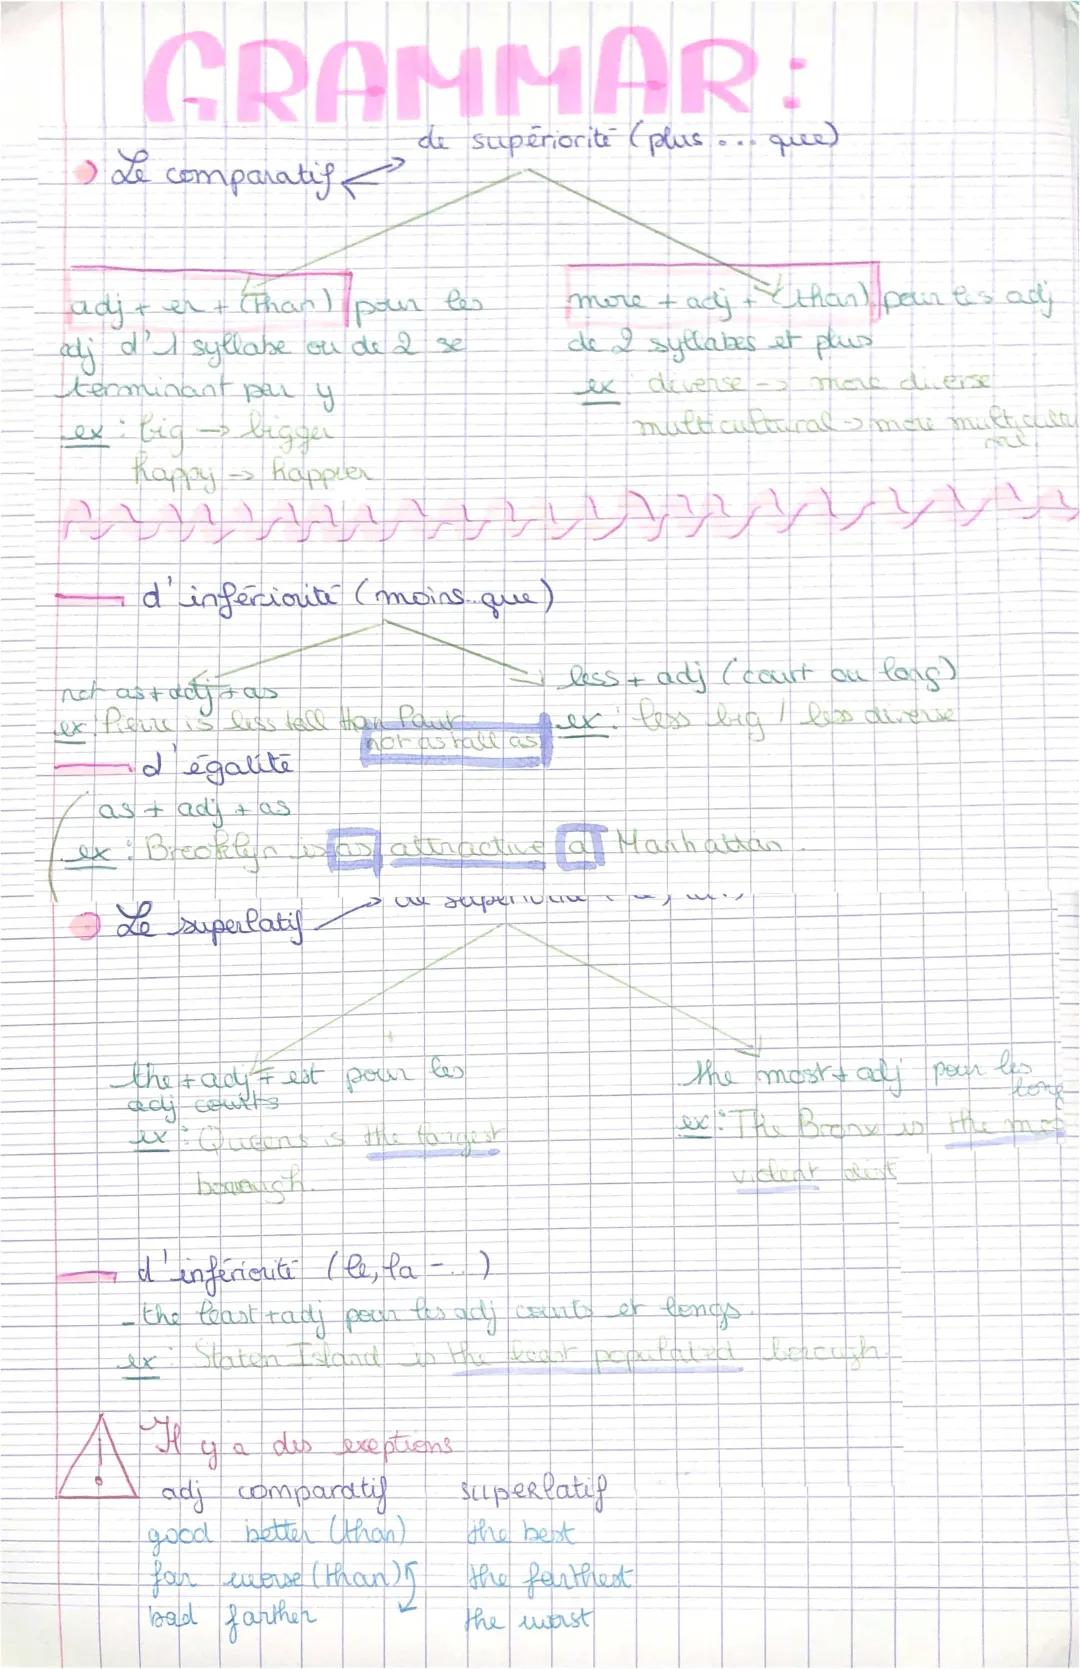 GRAMMAR:
de supériorité (plus ... que)
Le comparatif
adj + er + (than) pour les
adj d'1 syllabe ou de 2 se
terminant par y
ex : big → bigger
happy → happier
more + adj + (than) pour les adj
de 2 syllabes et plus
ex : diverse → more diverse
multicultural → more multicultu
ral
d'infériorité (moins..que)
not as + adj + as
ex : Pierre is less tall than Paul
not as tall as
less + adj (court ou long)
ex : less big / less diverse
d'égalité
as + adj + as
ex : Brooklyn is as attractive a Manhattan.
Le superlatif → de supériorité
the + adj + est pour les
adj courts
ex : Queens is the largest
borough.
the most + adj pour les
long
ex : The Bronx is the mos
violent dist
d'infériorité (le, la -...)
- the least + adj pour les adj courts et longs.
ex : Staten Island is the least populated borough.
Il y a des exeptions
adj comparatif superlatif
good better (than) the best
far worse (than) the farthest
bad farther the worst